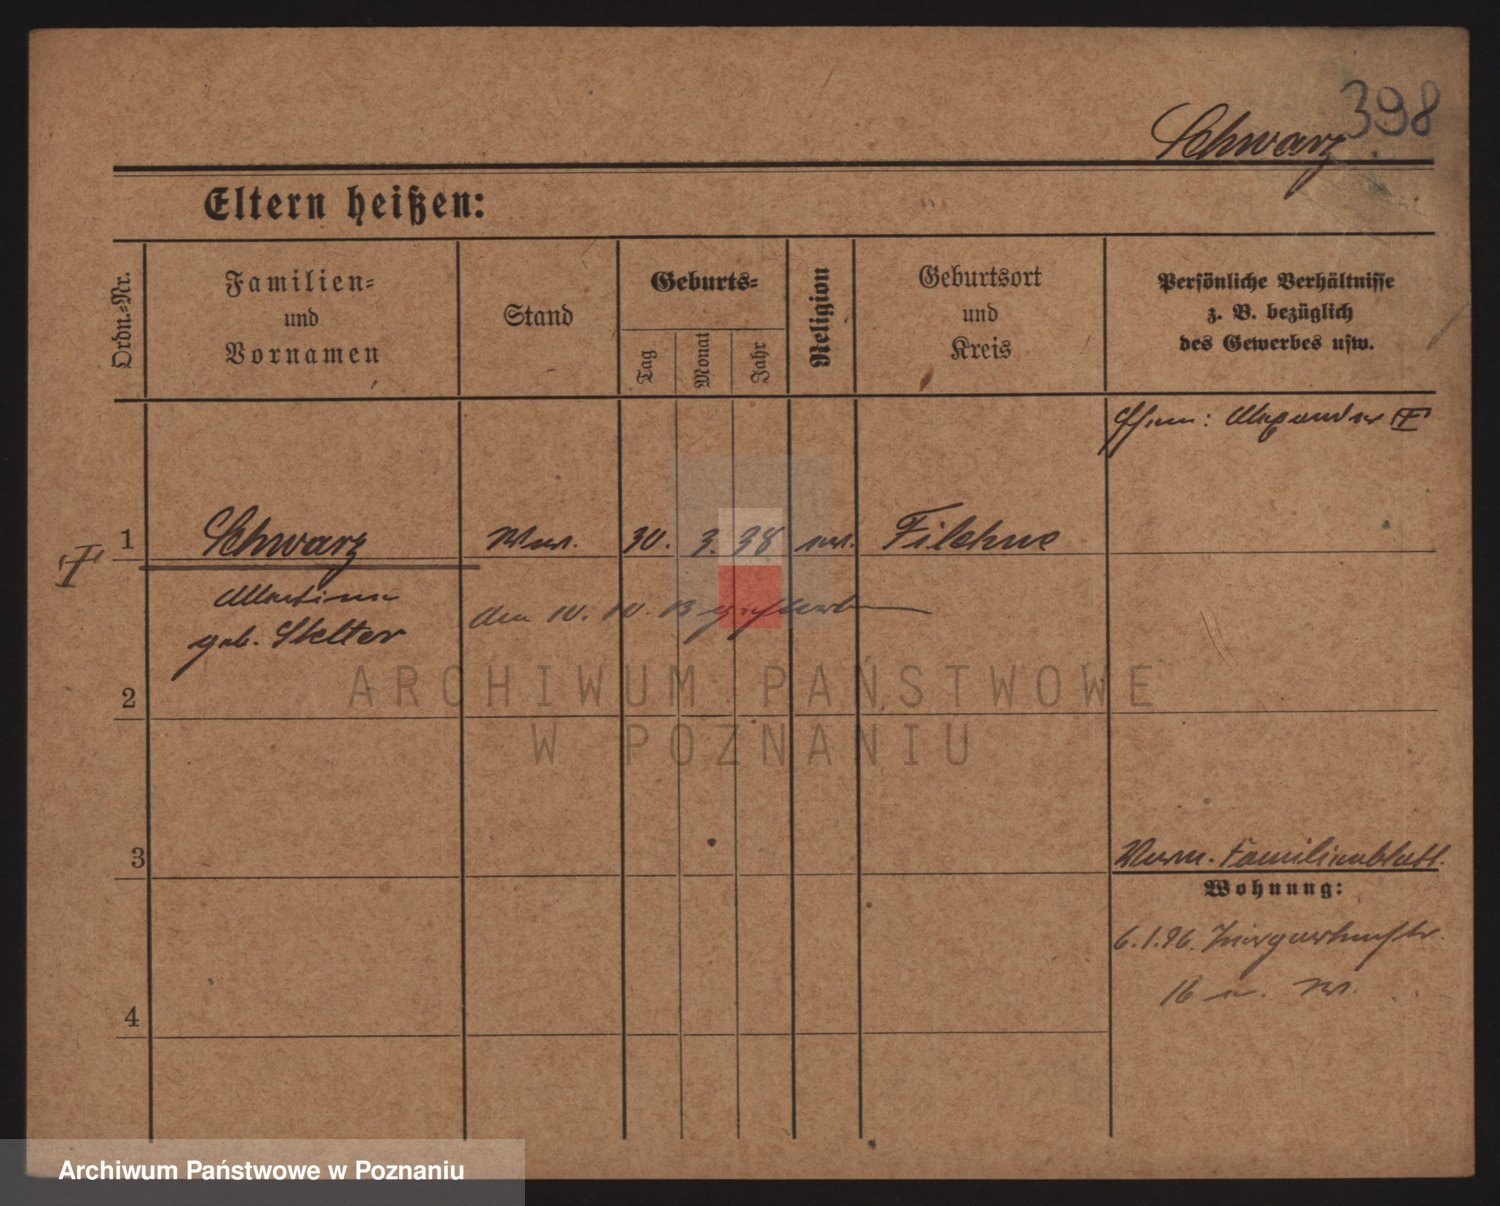 398
Schwarz
Eltern heißen:
Ordn.-Nr.
Familien-
und
Vornamen
Stand
Geburts-
Tag
Monat
Jahr
Religion
Geburtsort
und
Kreis
Persönliche Verhältnisse
z. B. bezüglich
des Gewerbes usw.
1 Schwarz Ww. 30. 3. 38 ev. Filehne
geb. Stelter
den 10. 10. 13 gestorben
2
3
Familienblatt.
Wohnung:
6.1.96.
16
4
ARCHIWUM PAŃSTWOWE
W POZNANIU
Archiwum Państwowe w Poznaniu